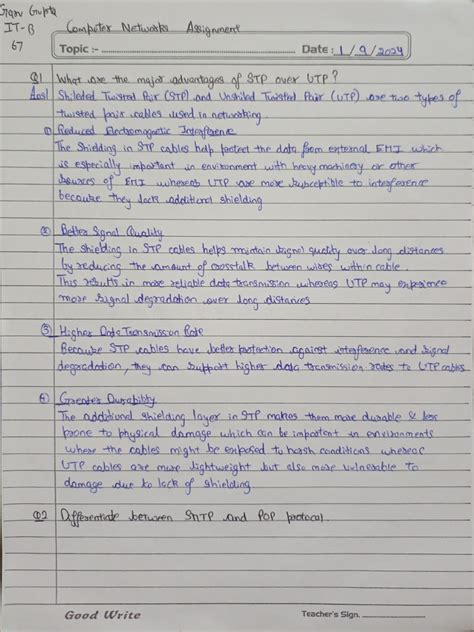 Garv Gupta
IT-B
67
Computer Networks Assignment
Topic :-
Date : 1/9/2024
Q1 What are the major advantages of STP over UTP?
Ans1 Shileded Twisted Pair (STP) and Unshiled Twisted Pair (UTP) are two types of
twisted pair cables used in networking.
① Reduced Electromagnetic Interference
The Shielding in STP cables help protect the data from external EMI which
is especially important in environment with heavy machinery or other
sources of EMI whereas UTP are more susceptible to interference
because they lack additional shielding
② Better Signal Quality
The shielding in STP cables helps maintain signal quality over long distances
by reducing the amount of crosstalk between wires within cable.
This results in more reliable data transmission whereas UTP may experience
more signal degradation over long distances
③ Higher Data Transmission Rate
Because STP cables have better protection against interference and signal
degradation, they can support higher data transmission rates to UTP cables.
④ Greater Durability
The additional shielding layer in STP makes them more durable & less
prone to physical damage which can be important in environments
where the cables might be exposed to harsh conditions whereas
UTP cables are more lightweight but also more vulnerable to
damage due to lack of shielding.
Q2 Differentiate between SMTP and POP protocol.
Good Write
Teacher's Sign.